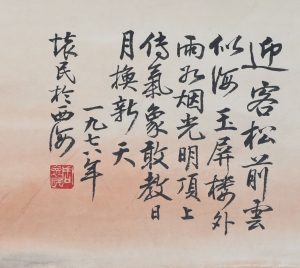 迎客松前雲
似海玉屏楼外
雨如烟光明頂上
傳氣象敢教日
月換新天
一九七八年
懷民於西海